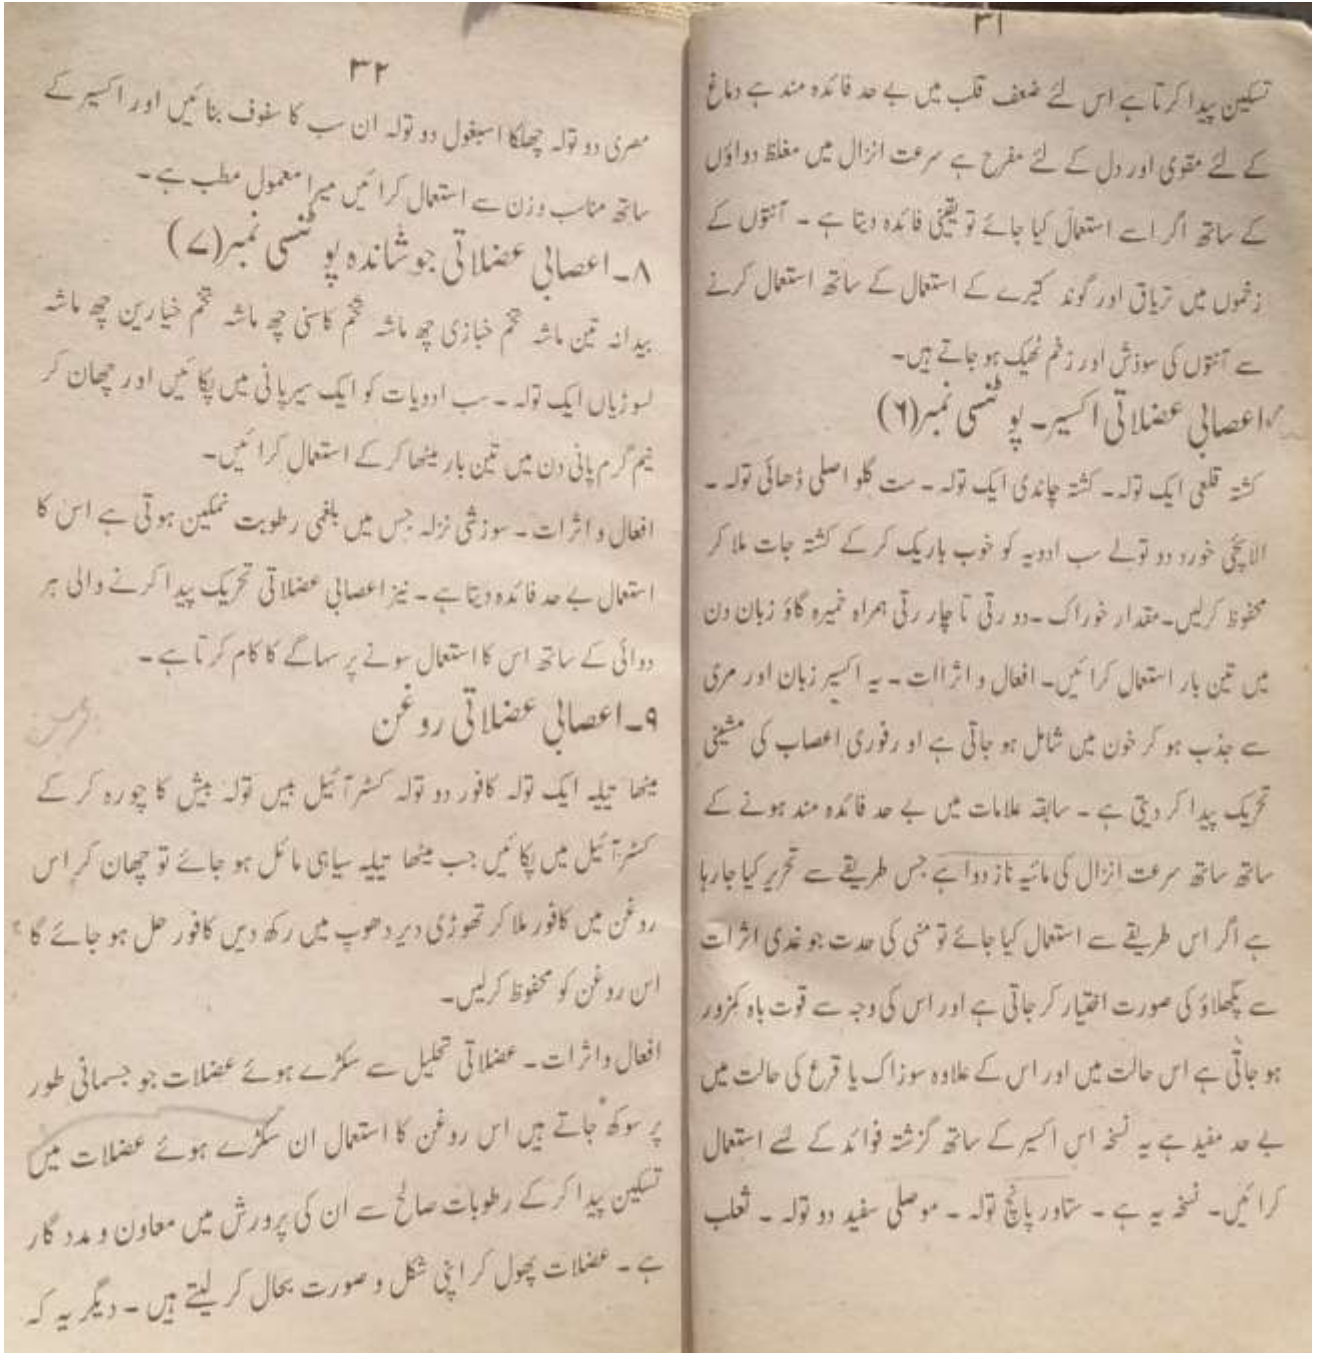 ۳۱
تسکین پیدا کرتا ہے اس لئے ضعف قلب میں بے حد فائدہ مند ہے دماغ
کے لئے مقوی اور دل کے لئے مفرح ہے سرعت انزال میں مغلظ دواؤں
کے ساتھ اگر اسے استعمال کیا جائے تو یقینی فائدہ دیتا ہے ۔ آنتوں کے
زخموں میں تریاق اور گوند کتیرے کے استعمال کے ساتھ استعمال کرنے
سے آنتوں کی سوزش اور زخم ٹھیک ہو جاتے ہیں۔
اعصابی عضلاتی اکسیر۔ پوٹنسی نمبر(۶)
کشتہ قلعی ایک تولہ۔ کشتہ چاندی ایک تولہ ۔ ست گلو اصلی ڈھائی تولہ ۔
الائچی خورد دو تولے سب ادویہ کو خوب باریک کرکے کشتہ جات ملا کر
محفوظ کرلیں۔ مقدار خوراک ۔دو رتی تا چار رتی ہمراہ خمیرہ گاؤ زبان دن
میں تین بار استعمال کرائیں۔ افعال و اثراات ۔ یہ اکسیر زبان اور مری
سے جذب ہو کر خون میں شامل ہو جاتی ہے او رفوری اعصاب کی مشینی
تحریک پیدا کر دیتی ہے ۔ سابقہ علامات میں بے حد فائدہ مند ہونے کے
ساتھ ساتھ سرعت انزال کی مائیہ ناز دوا ہے جس طریقے سے تحریر کیا جارہا
ہے اگر اس طریقے سے استعمال کیا جائے تو منی کی حدت جو غدی اثرات
سے پگھلاؤ کی صورت اختیار کر جاتی ہے اور اس کی وجہ سے قوت باہ کمزور
ہو جاتی ہے اس حالت میں اور اس کے علاوہ سوزاک یا قرع کی حالت میں
بے حد مفید ہے یہ نسخہ اس اکسیر کے ساتھ گزشتہ فوائد کے لئے استعمال
کرائیں۔ نسخہ یہ ہے ۔ ستاور پانچ تولہ ۔ موصلی سفید دو تولہ ۔ ثعلب
۳۲
مصری دو تولہ چھلکا اسبغول دو تولہ ان سب کا سفوف بنائیں اور اکسیر کے
ساتھ مناسب وزن سے استعمال کرائیں میرا معمول مطب ہے ۔
۸۔اعصابی عضلاتی جوشاندہ پوٹنسی نمبر(۷)
بیدانہ تین ماشہ تخم خبازی چھ ماشہ تخم کاسنی چھ ماشہ تخم خیارین چھ ماشہ
لسوڑیاں ایک تولہ ۔ سب ادویات کو ایک سیر پانی میں پکائیں اور چھان کر
نیم گرم پانی دن میں تین بار میٹھا کرکے استعمال کرائیں۔
افعال و اثرات ۔ سوزشی نزلہ جس میں بلغمی رطوبت نمکین ہوتی ہے اس کا
استعمال بے حد فائدہ دیتا ہے ۔ نیز اعصابی عضلاتی تحریک پیدا کرنے والی ہر
دوائی کے ساتھ اس کا استعمال سونے پر سہاگے کا کام کرتا ہے ۔
۹۔اعصابی عضلاتی روغن
میٹھا تیلیہ ایک تولہ کافور دو تولہ کسٹرآئیل بیس تولہ بیش کا چورہ کرکے
کسٹرآئیل میں پکائیں جب میٹھا تیلیہ سیاہی مائل ہو جائے تو چھان کر اس
روغن میں کافور ملا کر تھوڑی دیر دھوپ میں رکھ دیں کافور حل ہو جائے گا
اس روغن کو محفوظ کرلیں۔
افعال واثرات ۔ عضلاتی تحلیل سے سکڑے ہوئے عضلات جو جسمانی طور
پر سوکھ جاتے ہیں اس روغن کا استعمال ان سکڑے ہوئے عضلات میں
تسکین پیدا کرکے رطوبات صالح سے ان کی پرورش میں معاون و مدد گار
ہے ۔ عضلات پھول کر اپنی شکل و صورت بحال کر لیتے ہیں ۔ دیگر یہ کہ